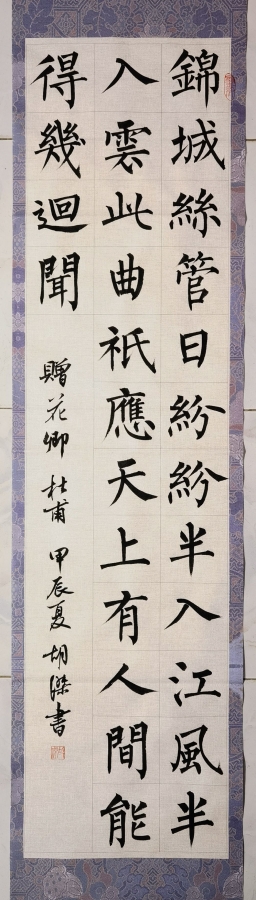 錦城絲管日紛紛半入江風半
入雲此曲祇應天上有人間能
得幾迴聞
贈花卿 杜甫 甲辰夏 胡傑書